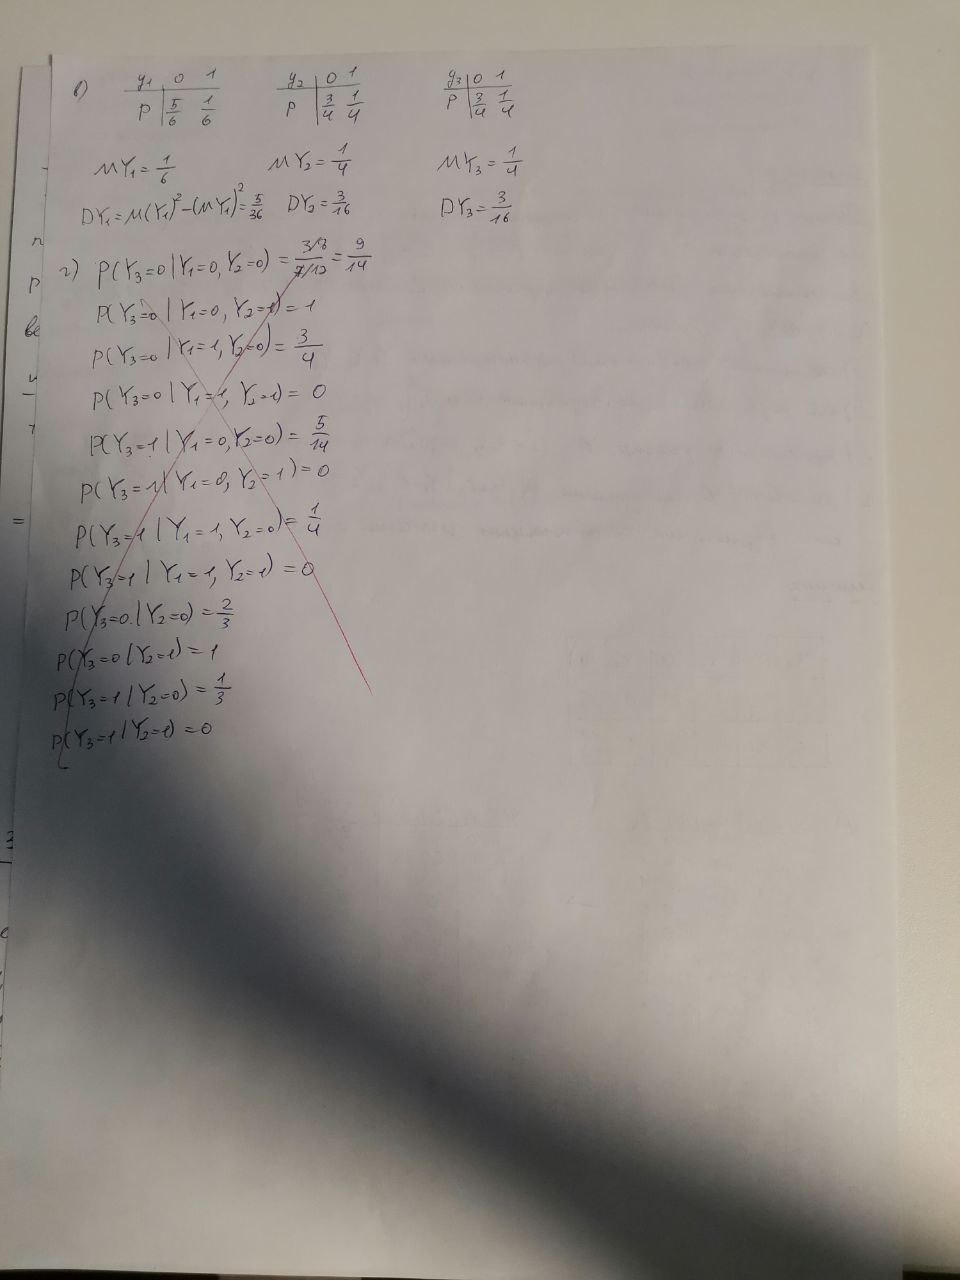 в) y₁ 0 1 y₂ 0 1 y₃ 0 1
P 5/6 1/6 P 3/4 1/4 P 3/4 1/4
MY₁ = 1/6 MY₂ = 1/4 MY₃ = 1/4
DY₁ = M(Y₁)² - (MY₁)² = 5/36 DY₂ = 3/16 DY₃ = 3/16
г) P(Y₃=0 | Y₁=0, Y₂=0) = (3/8)/(7/12) = 9/14
P(Y₃=0 | Y₁=0, Y₂=1) = 1
P(Y₃=0 | Y₁=1, Y₂=0) = 3/4
P(Y₃=0 | Y₁=1, Y₂=1) = 0
P(Y₃=1 | Y₁=0, Y₂=0) = 5/14
P(Y₃=1 | Y₁=0, Y₂=1) = 0
P(Y₃=1 | Y₁=1, Y₂=0) = 1/4
P(Y₃=1 | Y₁=1, Y₂=1) = 0
P(Y₃=0 | Y₂=0) = 2/3
P(Y₃=0 | Y₂=1) = 1
P(Y₃=1 | Y₂=0) = 1/3
P(Y₃=1 | Y₂=1) = 0